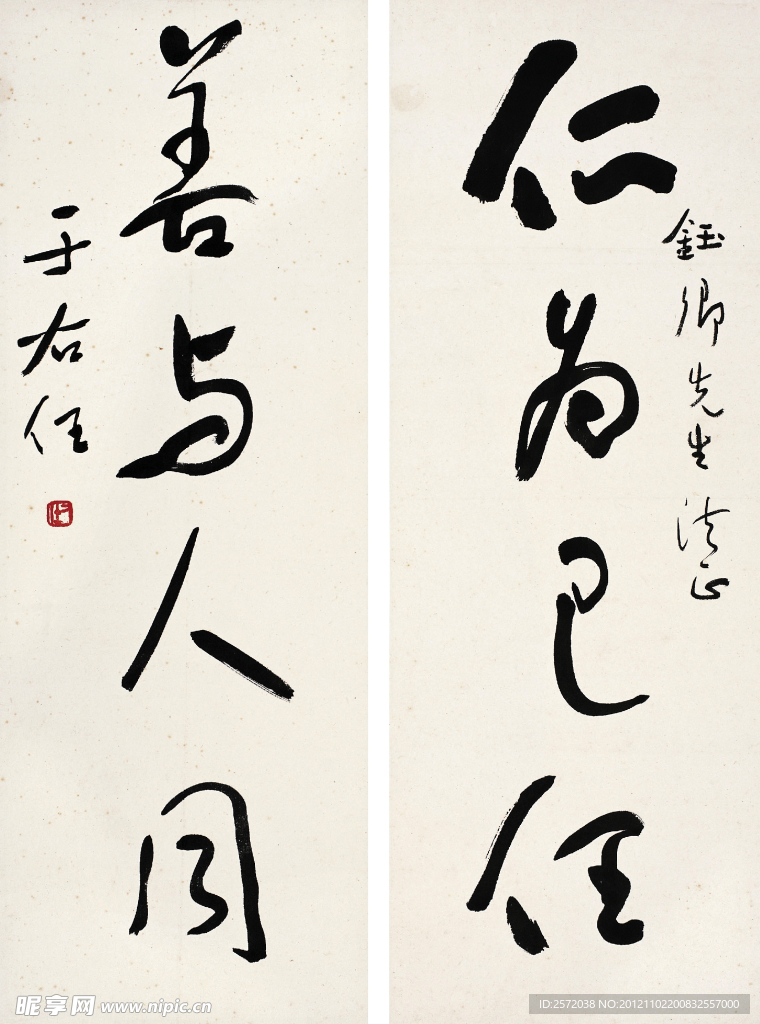 鈺卿先生法正
仁为己任
善与人同
于右任
昵享网 www.nipic.cn
ID:2572038 NO:20121102200832557000